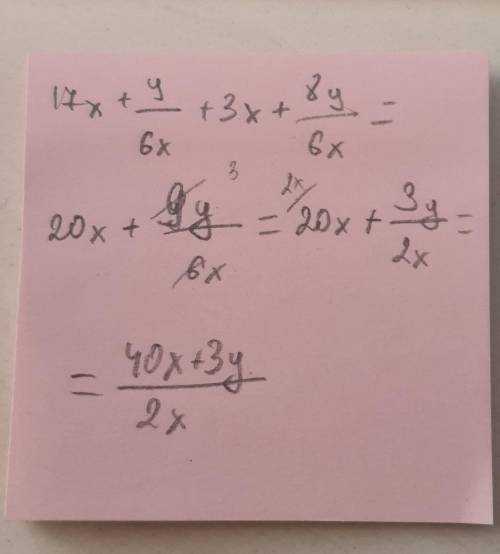 17x + y/6x + 3x + 8y/6x =
20x + 9y/6x 3 = 2x/ 20x + 3y/2x =
= 40x+3y/2x